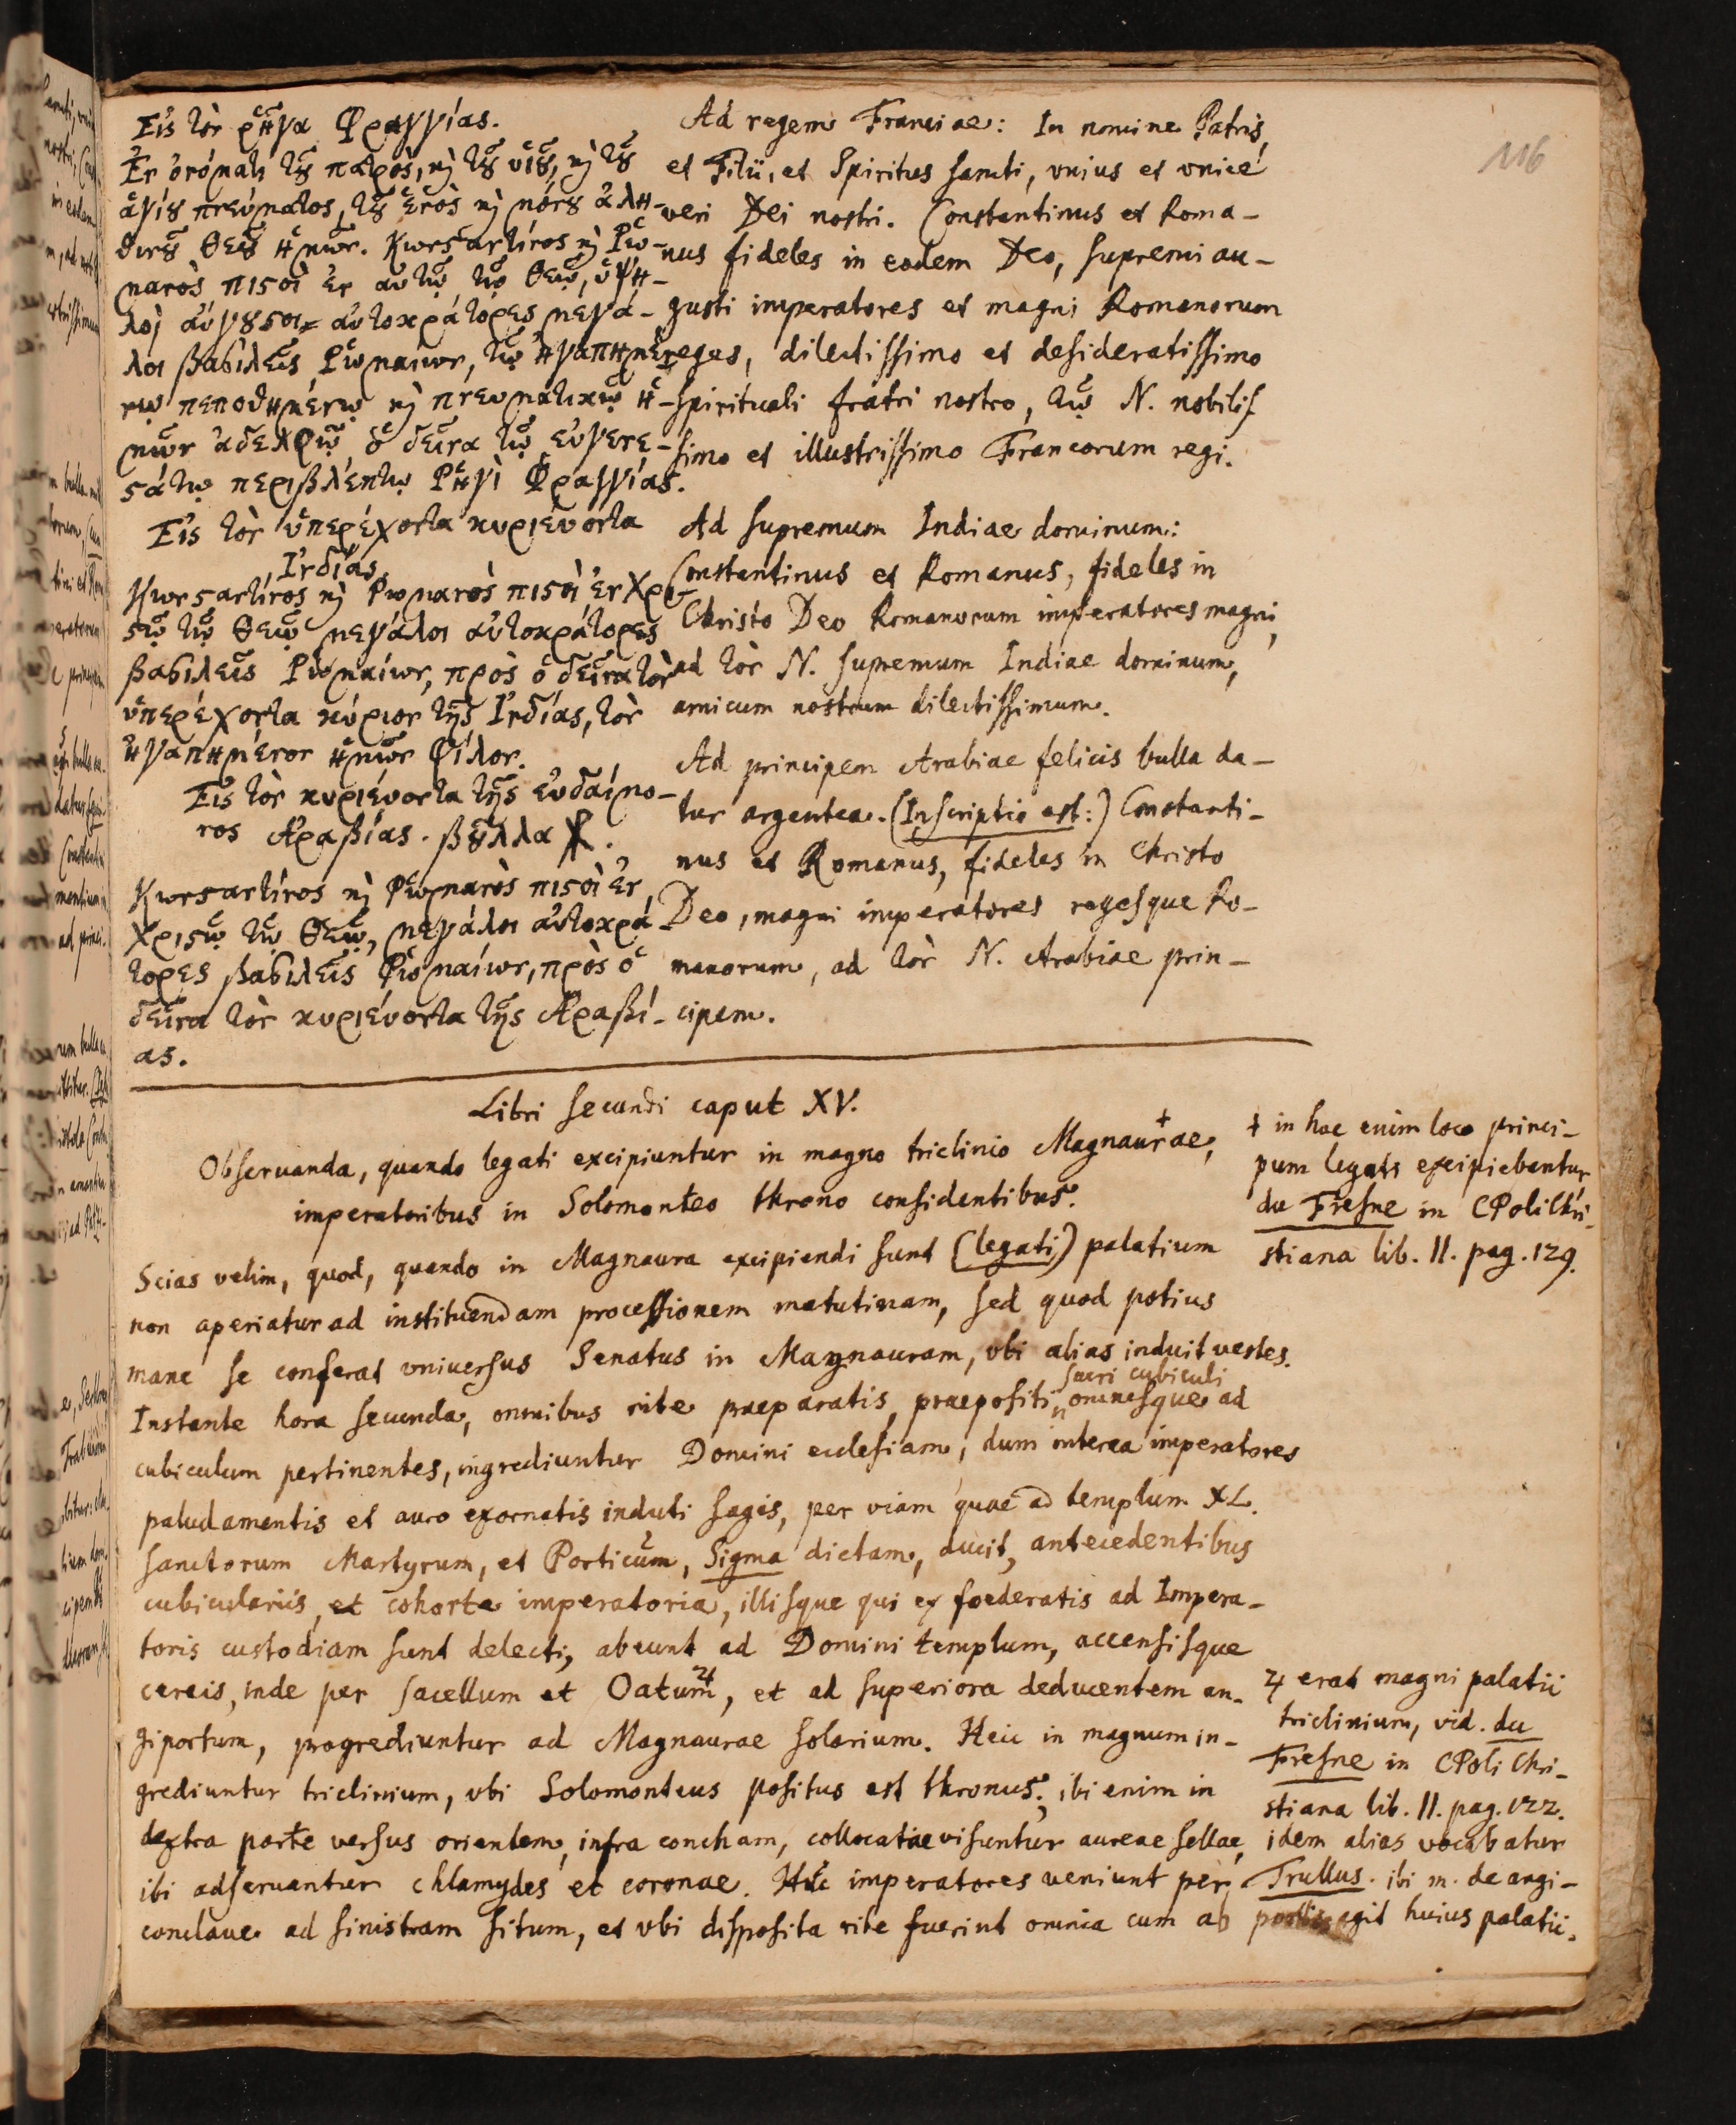 116
Εἰς τὸν ῥῆγα Φραγγίας.
Ἐν ὀνόματι τȣ͂ πατρὸς, κ̀ τȣ͂ υἱȣ͂, κ̀ τȣ͂
ἁγίȣ πνεύματος, τȣ͂ ἑνὸς κ̀ μόνȣ ἀλη-
θινȣ͂ Θεȣ͂ ἡμῶν. Κωνϛαντῖνος κ̀ Ῥω-
μανὸς πιϛοὶ ἐν αὐτῷ τῷ Θεῷ, ὑψη-
λοὶ αὔγȣϛοι αὐτοκράτορες μεγά-
λοι βασιλεῖς Ῥωμαίων, τῷ ἠγαπημέ-
νῳ πεποθημένῳ κ̀ πνευματικῷ ἡ-
μῶν ἀδελφῷ ὁ δεῖνα τῷ εὐγενε-
ϛάτῳ περιβλέπτῳ Ῥηγὶ Φραγγίας.
Εἰς τὸν ὑπερέχοντα κυριεύοντα
Ἰνδίας.
Κωνϛαντῖνος κ̀ Ῥωμανὸς πιϛοὶ ἐν Χρι-
ϛῷ τῷ Θεῷ μεγάλοι αὐτοκράτορες
βασιλεῖς Ῥωμαίων, πρὸς ὁ δεῖνα τὸν
ὑπερέχοντα κύριον τῆς Ἰνδίας, τὸν
ἠγαπημένον ἡμῶν φίλον.
Εἰς τὸν κυριεύοντα τῆς εὐδαίμο-
νος Ἀραβίας. βȣ͂λλα χ̅.
Κωνϛαντῖνος κ̀ Ῥωμανὸς πιϛοὶ ἐν
Χριϛῷ τῷ Θεῷ, μεγάλοι αὐτοκρά-
τορες βασιλεῖς Ῥωμαίων, πρὸς ὁ
δεῖνα τὸν κυριεύοντα τῆς Ἀραβί-
ας.
Ad regem Franciae: In nomine Patris,
et Filii, et Spiritus sancti, vnius et vnice
veri Dei nostri. Constantinus et Roma-
nus fideles in eodem Deo, supremi au-
gusti imperatores et magni Romanorum
reges, dilectissimo et desideratissimo
spirituali fratri nostro, τῷ N. nobilis-
simo et illustrissimo Francorum regi.
Ad supremum Indiae dominum:
Constantinus et Romanus, fideles in
Christo Deo Romanorum imperatores magni,
ad τὸν N. supremum Indiae dominum,
amicum nostrum dilectissimum.
Ad principem Arabiae felicis bulla da-
tur argentea. (Inscriptio est:) Constanti-
nus et Romanus, fideles in Christo
Deo, magni imperatores regesque Ro-
manorum, ad τὸν N. Arabiae prin-
cipem.
Libri secundi caput XV.
Obseruanda, quando legati excipiuntur in magno triclinio Magnaurae,+
imperatoribus in Solomonteo throno considentibus.
Scias velim, quod, quando in Magnaura excipiendi sunt (legati) palatium
non aperiatur ad instituendam processionem matutinam, sed quod potius
mane se conferat vniuersus Senatus in Magnauram, vbi alias induit vestes.
sacri cubiculi
Instante hora secunda, omnibus rite praeparatis, praepositi omnesque ad
cubiculum pertinentes, ingrediuntur Domini ecclesiam, dum interea imperatores
paludamentis et auro exornatis induti sagis, per viam quae ad templum XL.
sanctorum Martyrum, et Porticum, Sigma dictam, ducit, antecedentibus
cubiculariis, et cohorte imperatoria, illisque qui ex foederatis ad Impera-
toris custodiam sunt delecti, abeunt ad Domini templum, accensisque
cereis, inde per sacellum et Oatum ♃, et ad superiora deducentem an-
giportum, progrediuntur ad Magnaurae solarium. Heic in magnum in-
grediuntur triclinium, vbi Solomonteus positus est thronus; ibi enim in
dextra parte versus orientem, infra concham, collocatae visuntur aureae sellae,
ibi adseruantur chlamydes et coronae. Huc imperatores veniunt per
conclaue ad sinistram situm, et vbi disposita rite fuerint omnia cum ab
+ in hac enim loco princi-
pum legati excipiebantur
du Fresne in CPoli Chri-
stiana lib. II. pag. 129.
♃ erat magni palatii
triclinium, vid. du
Fresne in CPoli Chri-
stiana lib. II. pag. 122.
idem alias vocabatur
Trullus. ibi m. de angi-
portis agit huius palatii.